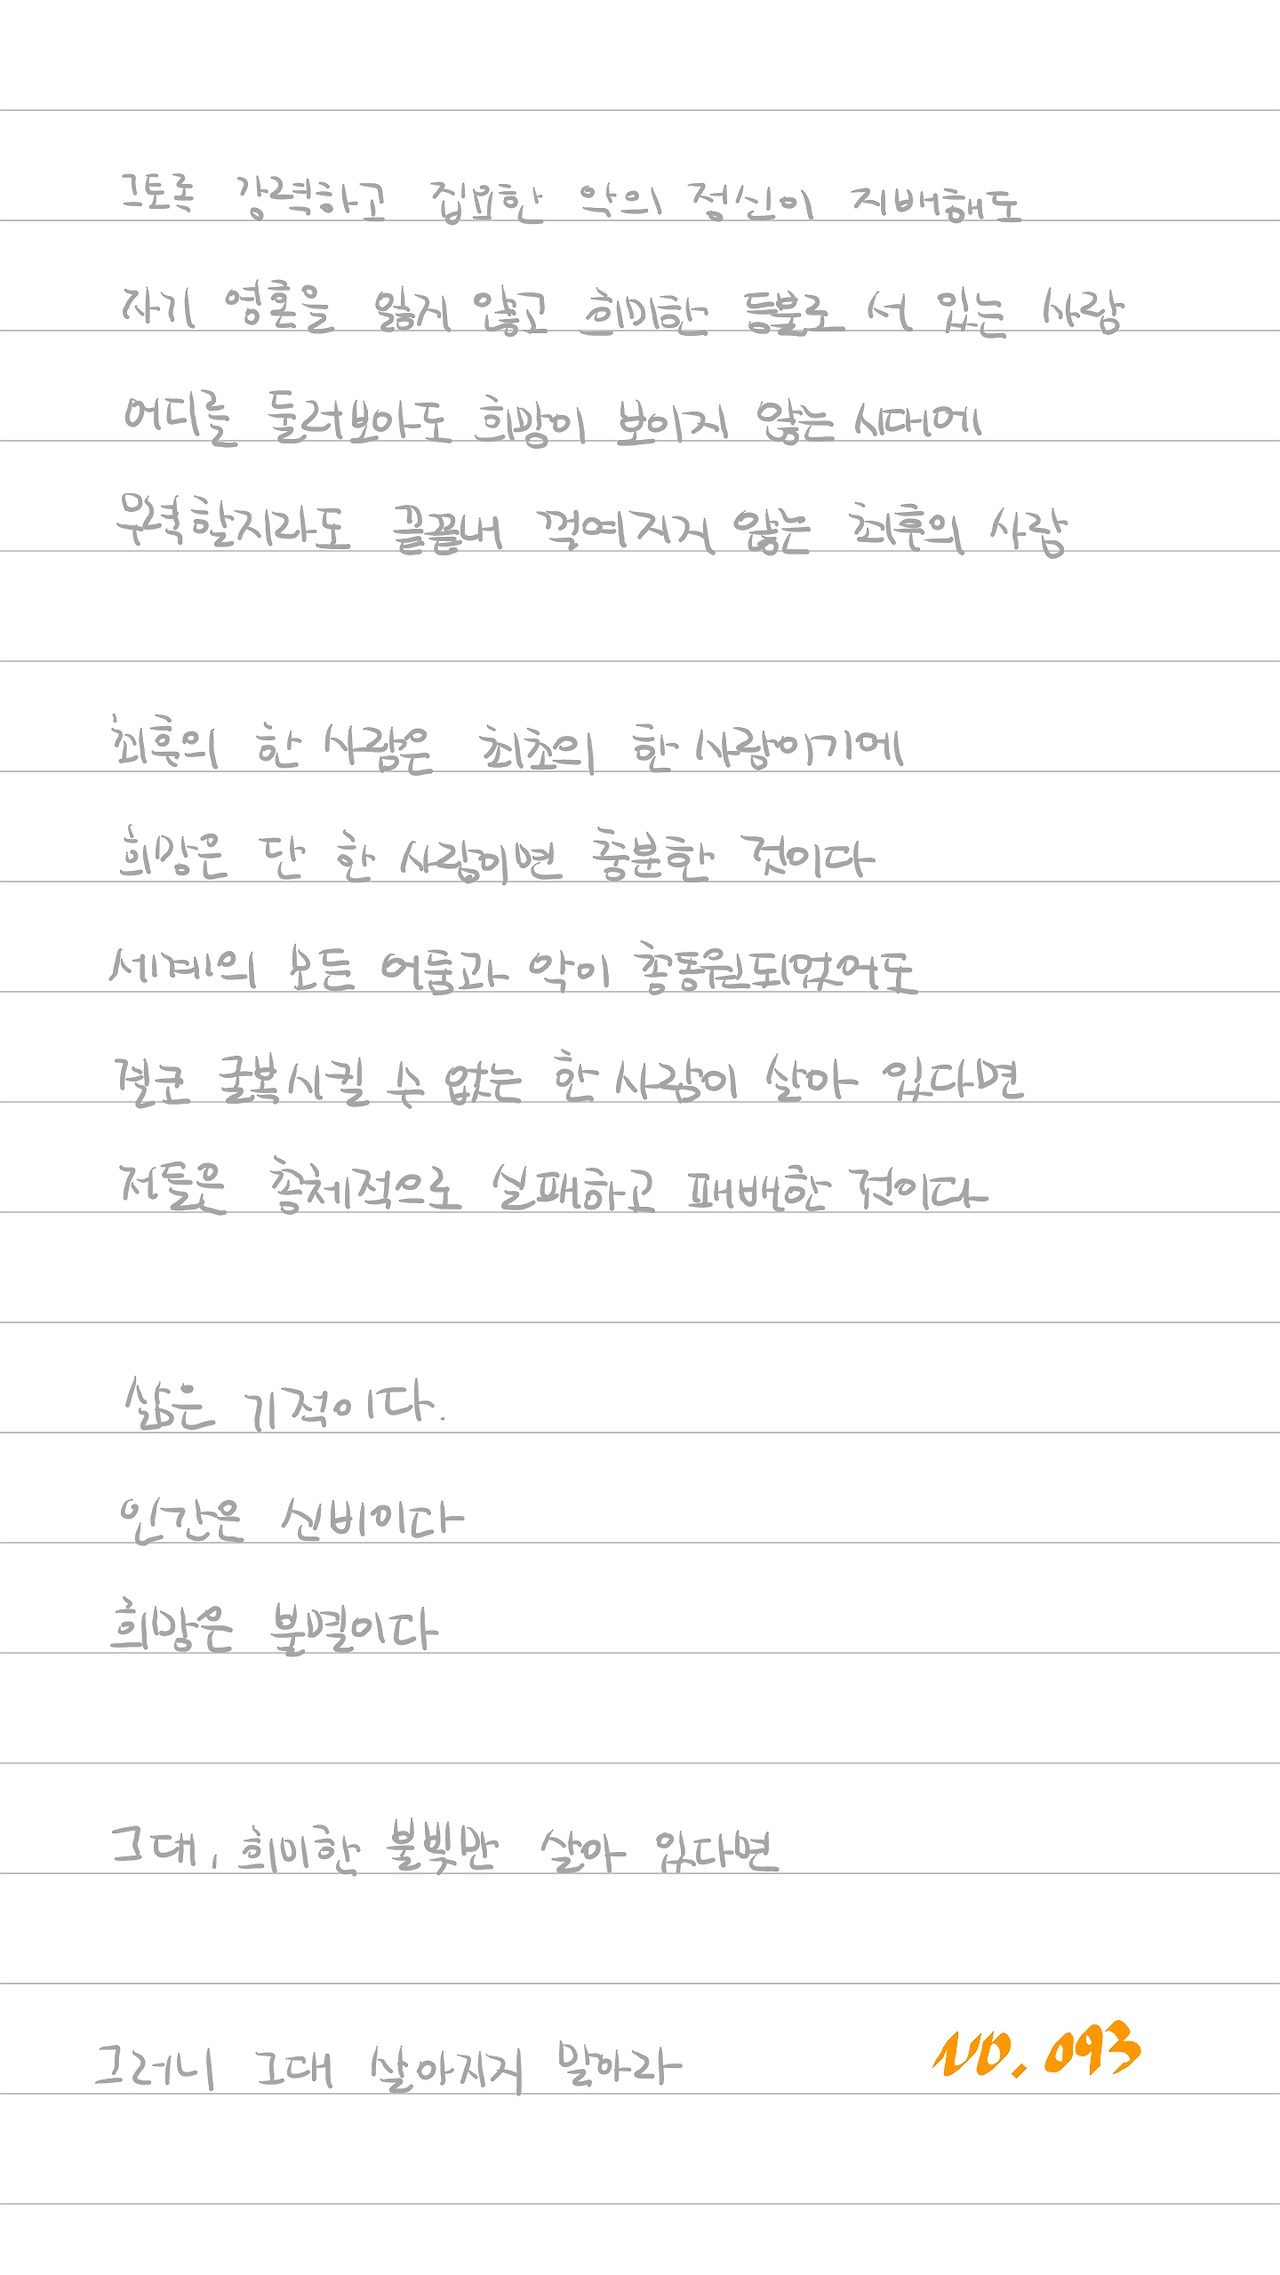 그토록 강력하고 집요한 악의 정신이 지배해도
자기 영혼을 잃지 않고 희미한 등불로 서 있는 사람
어디를 둘러보아도 희망이 보이지 않는 시대에
무력할지라도 끝끝내 꺾여지지 않는 최후의 사람
최후의 한 사람은 최초의 한 사람이기에
희망은 단 한 사람이면 충분한 것이다
세계의 모든 어둠과 악이 총동원되었어도
결코 굴복시킬 수 없는 한 사람이 살아 있다면
저들은 총체적으로 실패하고 패배한 것이다
삶은 기적이다.
인간은 신비이다
희망은 불멸이다
그대, 희미한 불빛만 살아 있다면
그러니 그대 살아지지 말아라
NO. 093